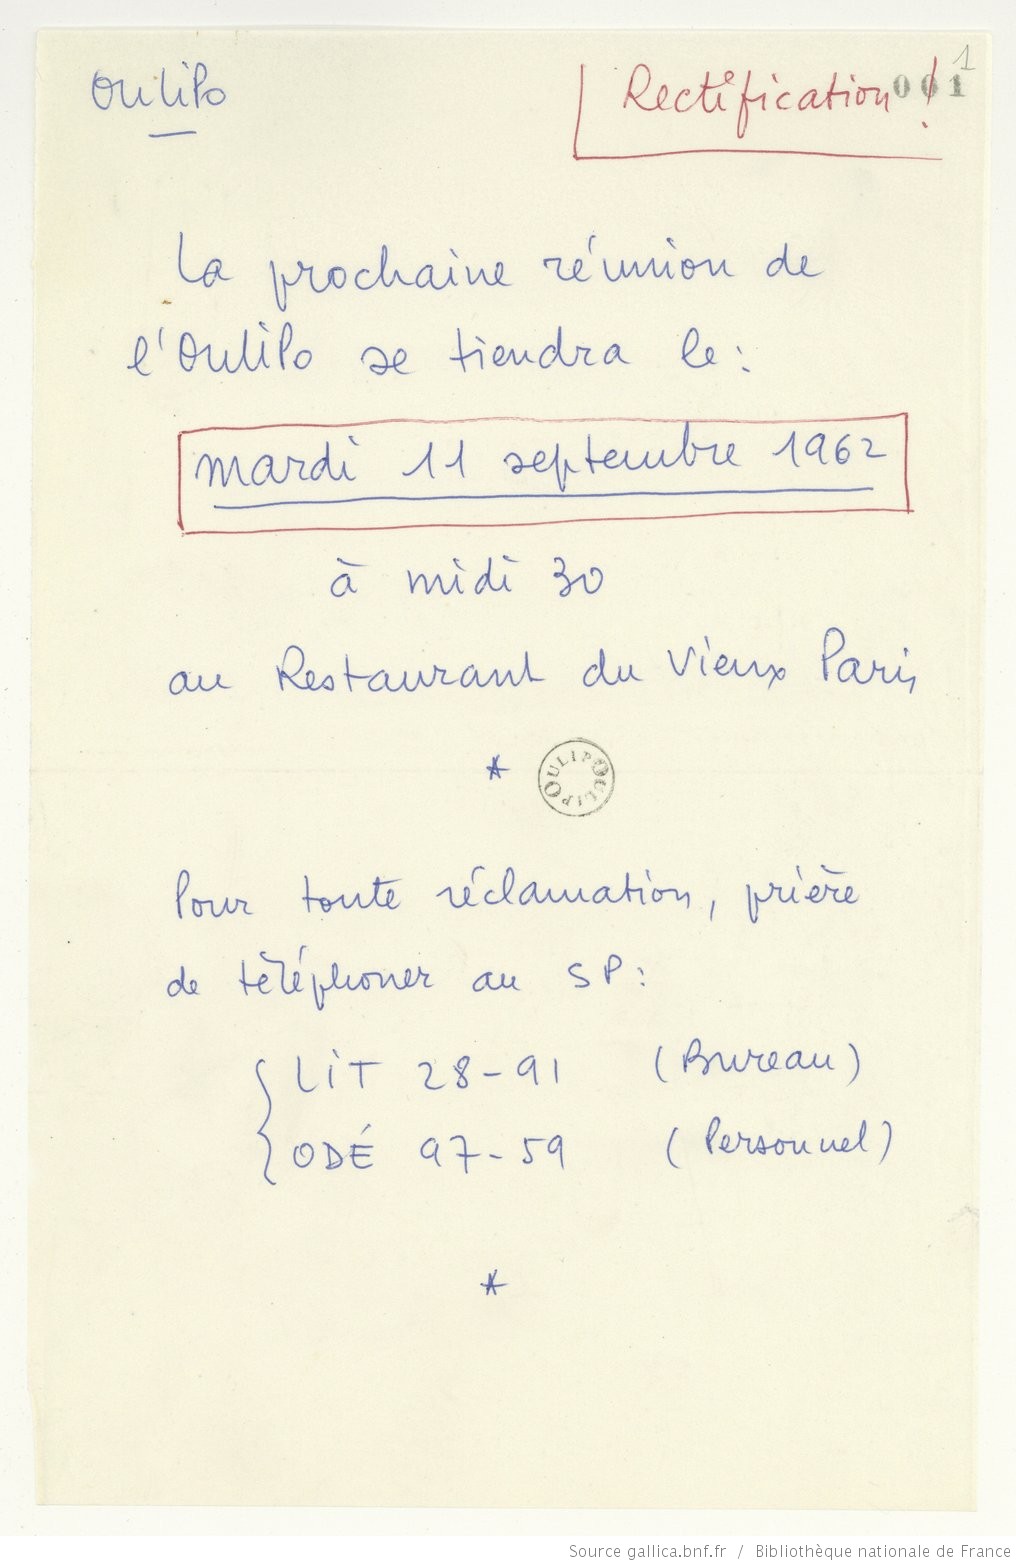 OuLiPo
Rectification !
001
1
La prochaine réunion de
l'OuLiPo se tiendra le :
mardi 11 septembre 1962
à midi 30
au Restaurant du Vieux Paris
*
OULIPO OULIPO
Pour toute réclamation, prière
de téléphoner au SP :
{ LIT 28-91 (Bureau)
ODÉ 97-59 (Personnel)
*
Source gallica.bnf.fr / Bibliothèque nationale de France